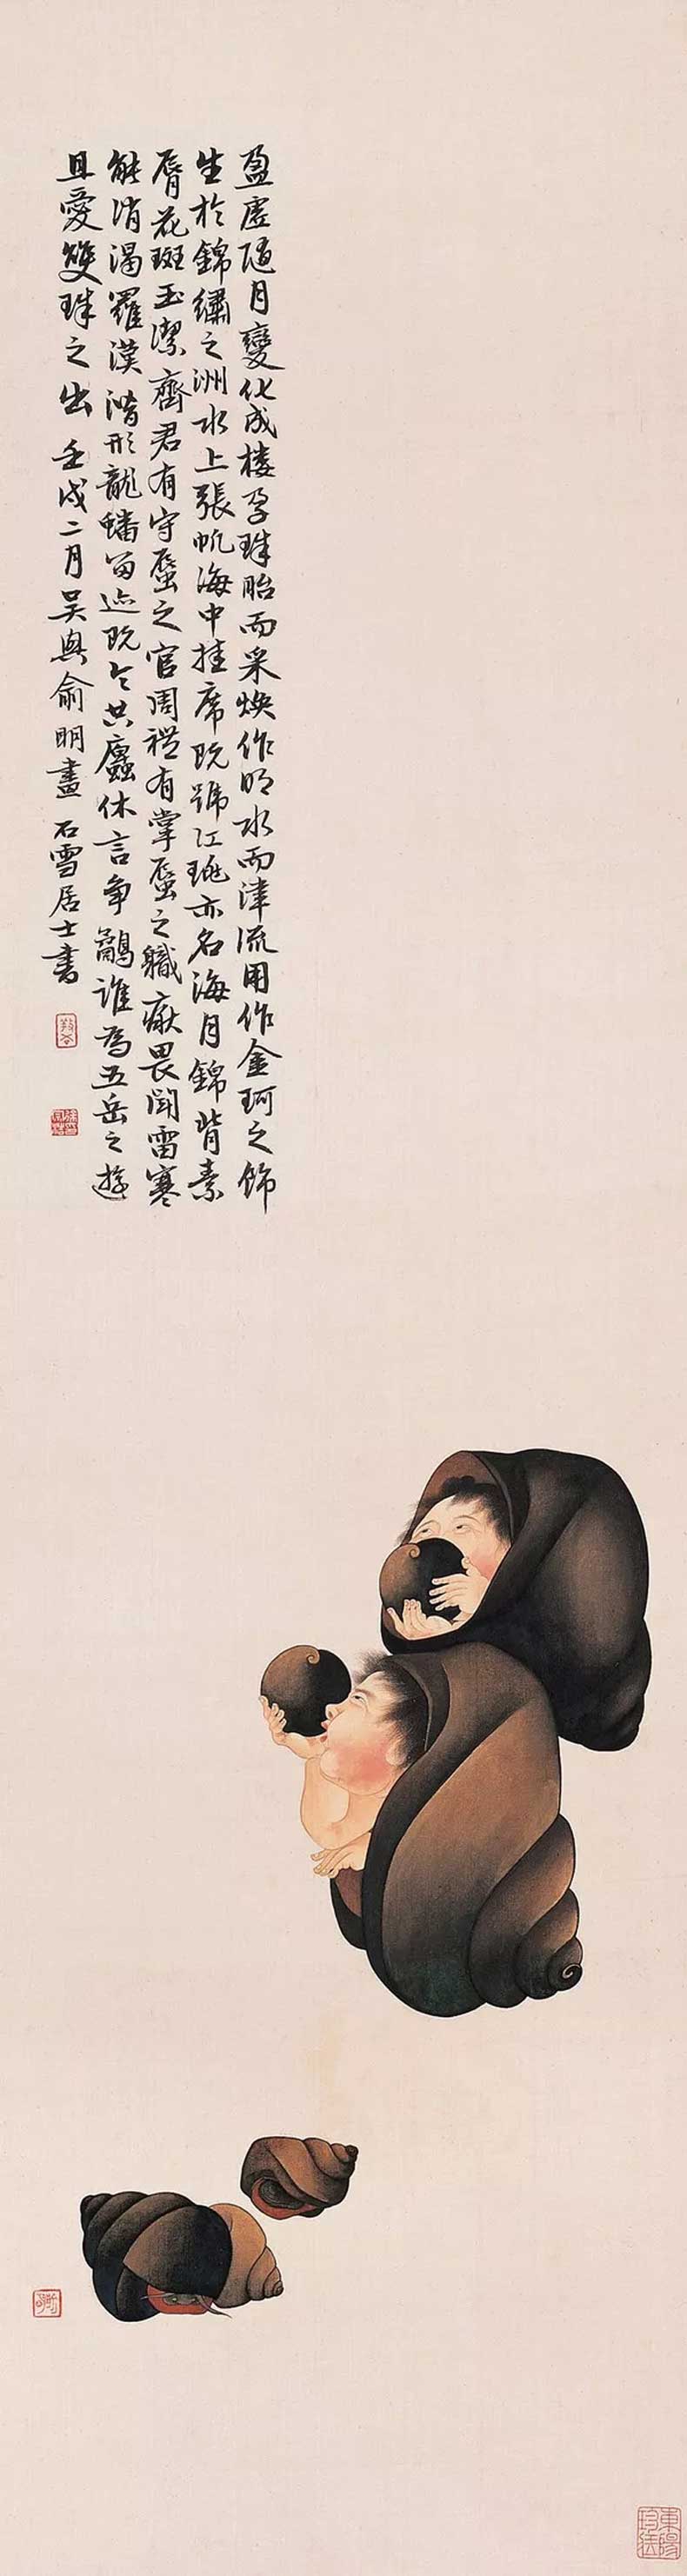 盈虛隨月變化成樓孕珠胎而采煥作明水而津流用作金珂之飾
生於錦繡之洲水上張帆海中挂席既號江珧亦名海月錦背素
脣花斑玉潔齊君有守蜃之官周禮有掌蜃之職瘚畏聞雷寒
能消渴羅漢潛形龍蟠留迹既令共廬休言爭鷸誰為五岳之遊
且愛雙珠之出 壬戌二月吳興俞明畫 石雪居士書
東陽